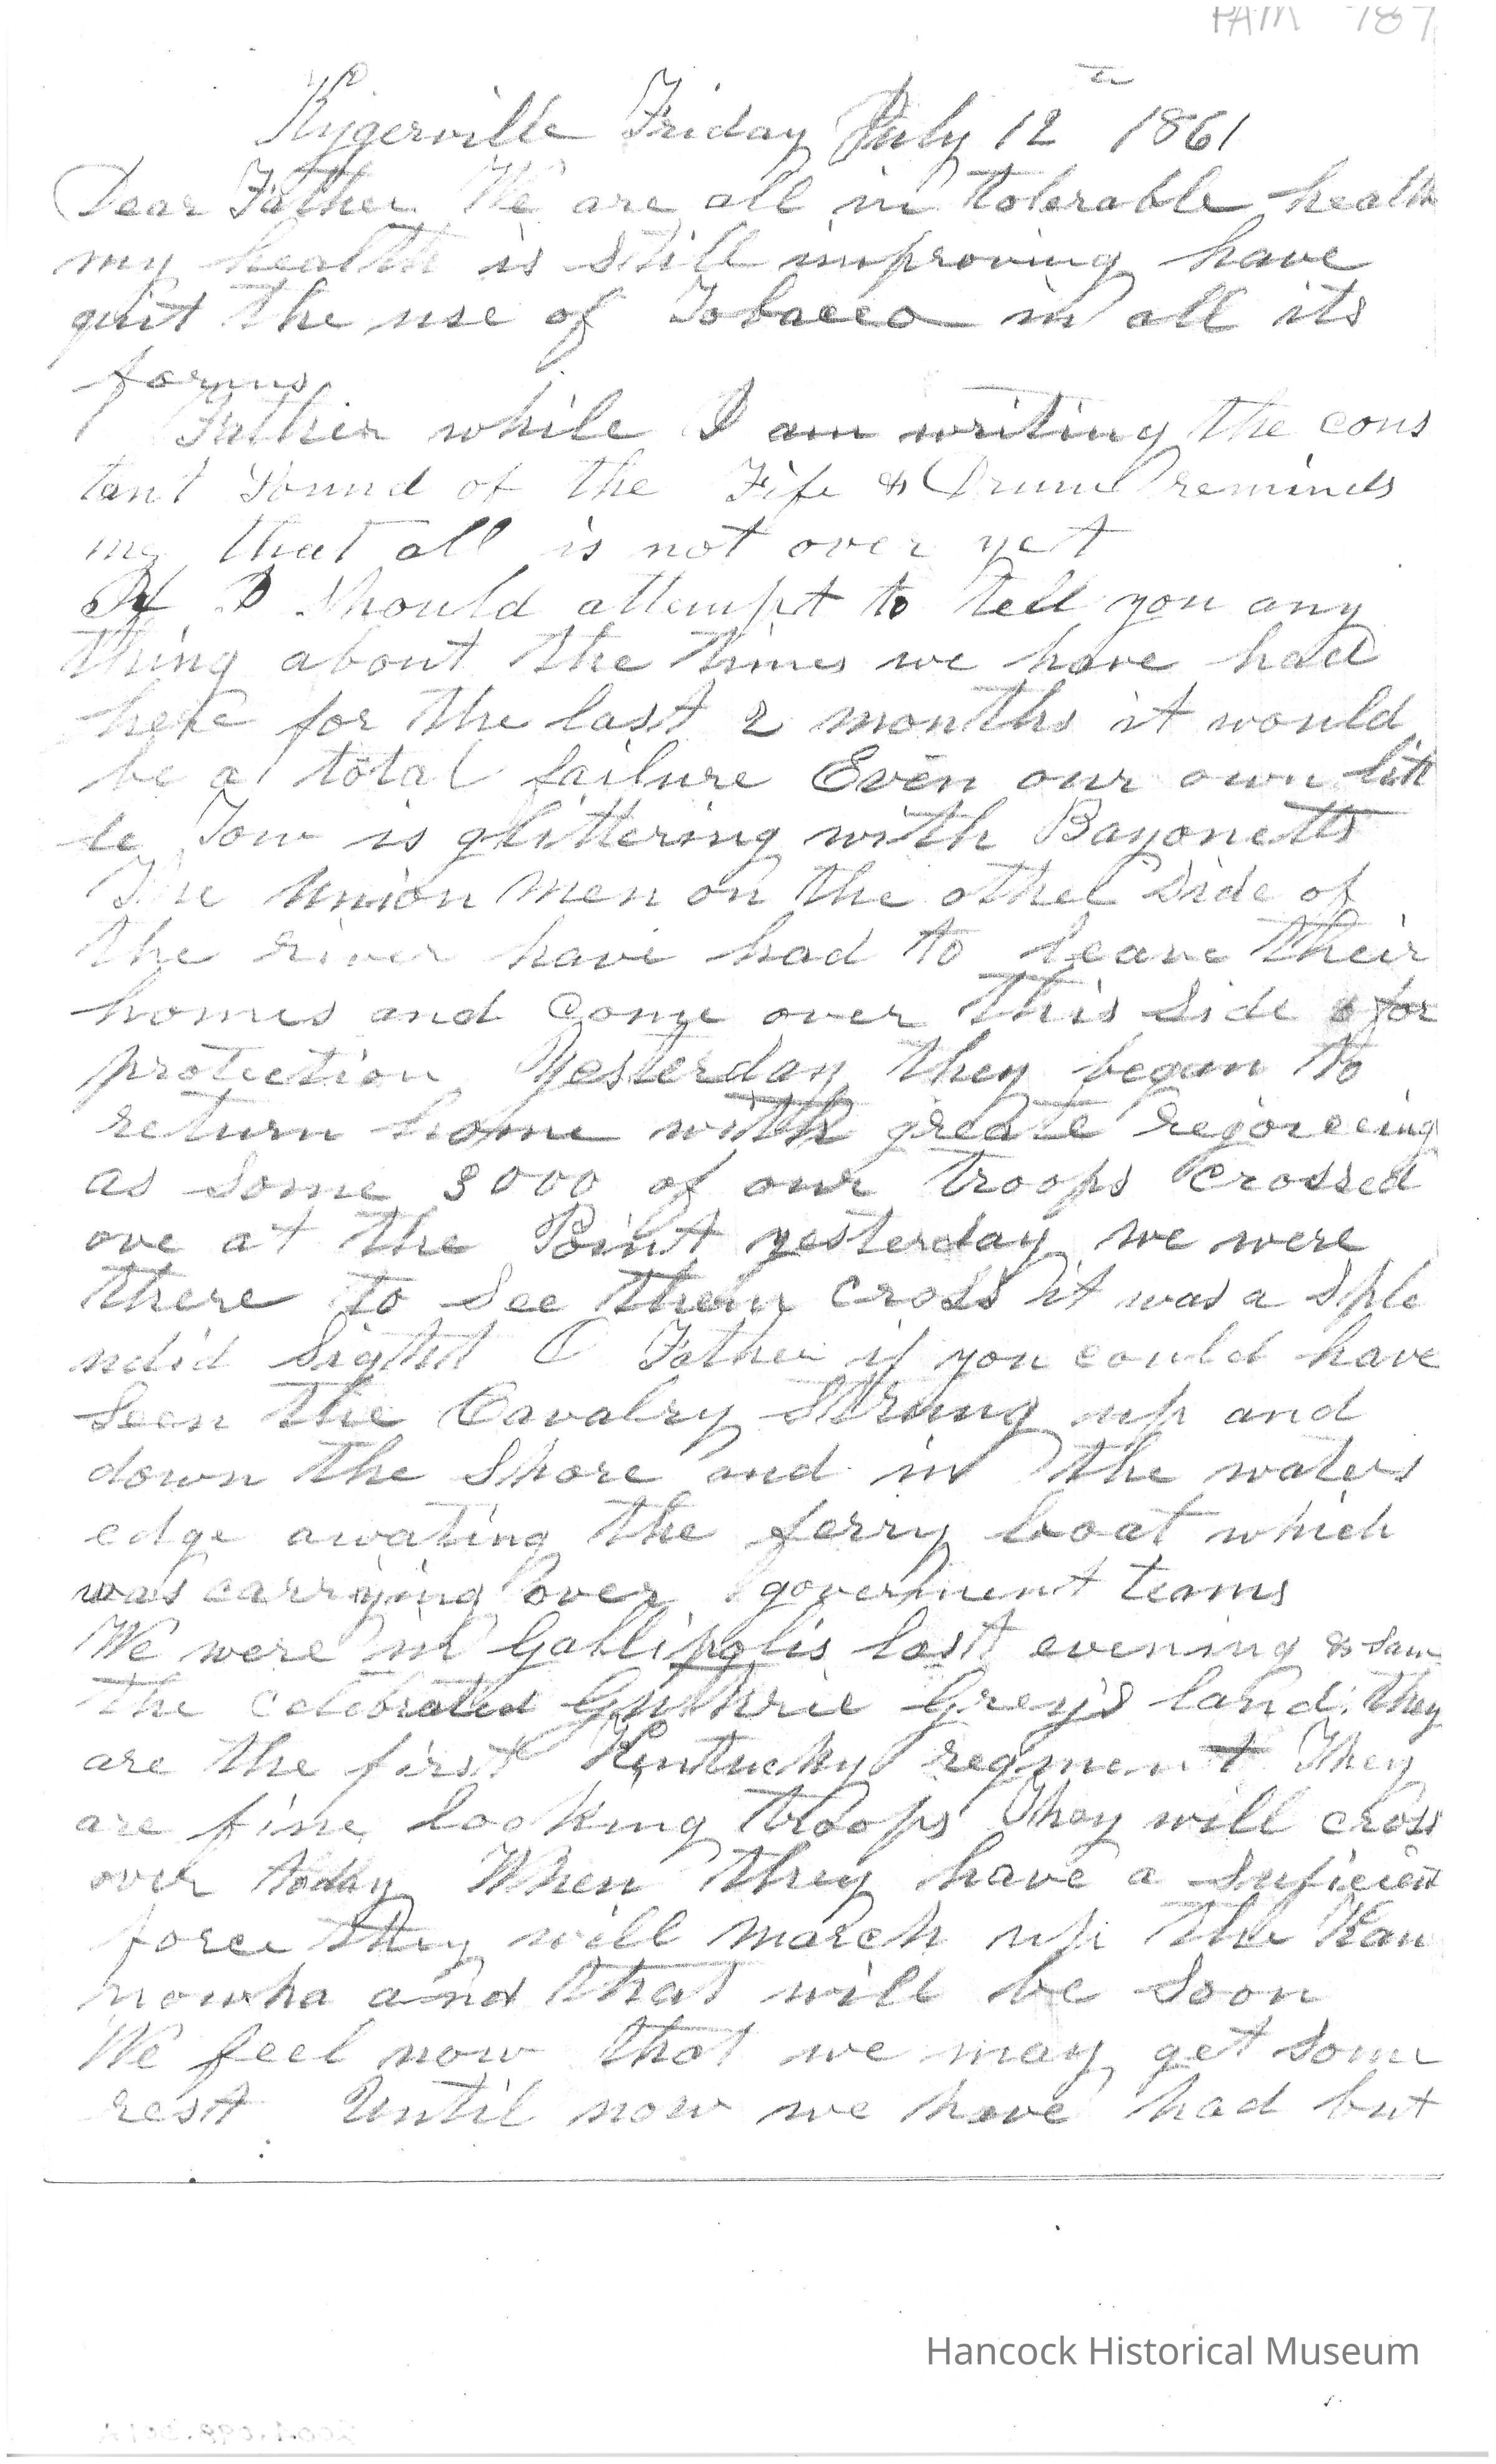 PAM 787
Kygerville Friday July 12th 1861
Dear Father We are all in tolerable health
my health is still improving have
quit the use of Tobacco in all its
forms
Father while I am writing the cons
tant Sound of the Fife & Drum reminds
me that all is not over yet
If I Should attempt to tell you any
thing about the times we have had
here for the last 2 months it would
be a total failure Even our own litt
le Tow is glittering with Bayonetts
The Union men on the other Side of
the river have had to leave their
homes and come over this Side for
protection Yesterday they began to
return home with greate rejoiceing
as Some 3000 of our troops crossed
ove at the Point yesterday we were
there to See them cross it was a Sple
ndid Sight O Father if you could have
Seen the Cavalry Strung up and
down the Shore and in the waters
edge awating the ferry boat which
was carrying over goverment teams
We were in Gallipolis last evening & Saw
the celebrated Guthrie Grey's land. they
are the first Kentucky regment They
are fine looking troops They will cross
over today When they have a suficient
force they will march up the Kan
nowha and that will be Soon
We feel now that we may get Some
rest Until now we have had but
Hancock Historical Museum